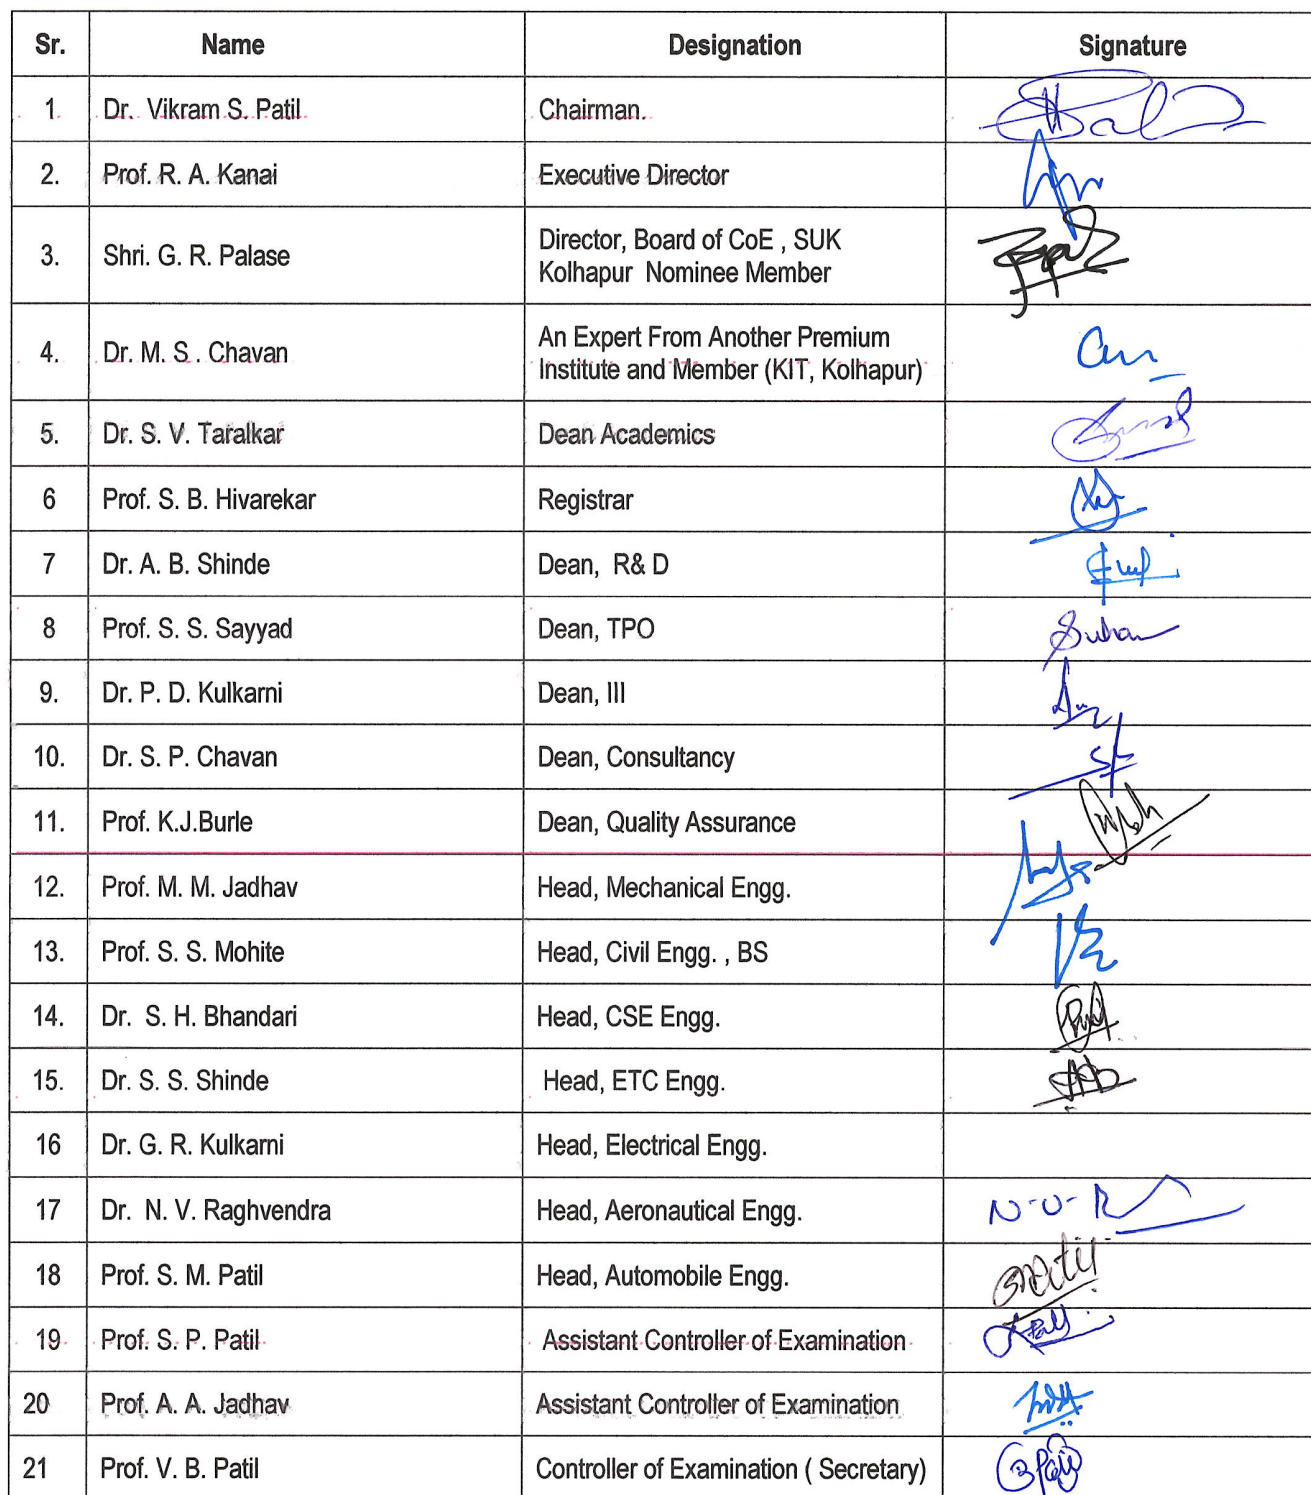 Sr. Name Designation Signature
1. Dr. Vikram S. Patil Chairman.
2. Prof. R. A. Kanai Executive Director
3. Shri. G. R. Palase Director, Board of CoE , SUK
Kolhapur Nominee Member
4. Dr. M. S . Chavan An Expert From Another Premium
Institute and Member (KIT, Kolhapur)
5. Dr. S. V. Taralkar Dean Academics
6 Prof. S. B. Hivarekar Registrar
7 Dr. A. B. Shinde Dean, R& D
8 Prof. S. S. Sayyad Dean, TPO
9. Dr. P. D. Kulkarni Dean, III
10. Dr. S. P. Chavan Dean, Consultancy
11. Prof. K.J.Burle Dean, Quality Assurance
12. Prof. M. M. Jadhav Head, Mechanical Engg.
13. Prof. S. S. Mohite Head, Civil Engg. , BS
14. Dr. S. H. Bhandari Head, CSE Engg.
15. Dr. S. S. Shinde Head, ETC Engg.
16 Dr. G. R. Kulkarni Head, Electrical Engg.
17 Dr. N. V. Raghvendra Head, Aeronautical Engg.
18 Prof. S. M. Patil Head, Automobile Engg.
19 Prof. S. P. Patil Assistant Controller of Examination
20 Prof. A. A. Jadhav Assistant Controller of Examination
21 Prof. V. B. Patil Controller of Examination ( Secretary)